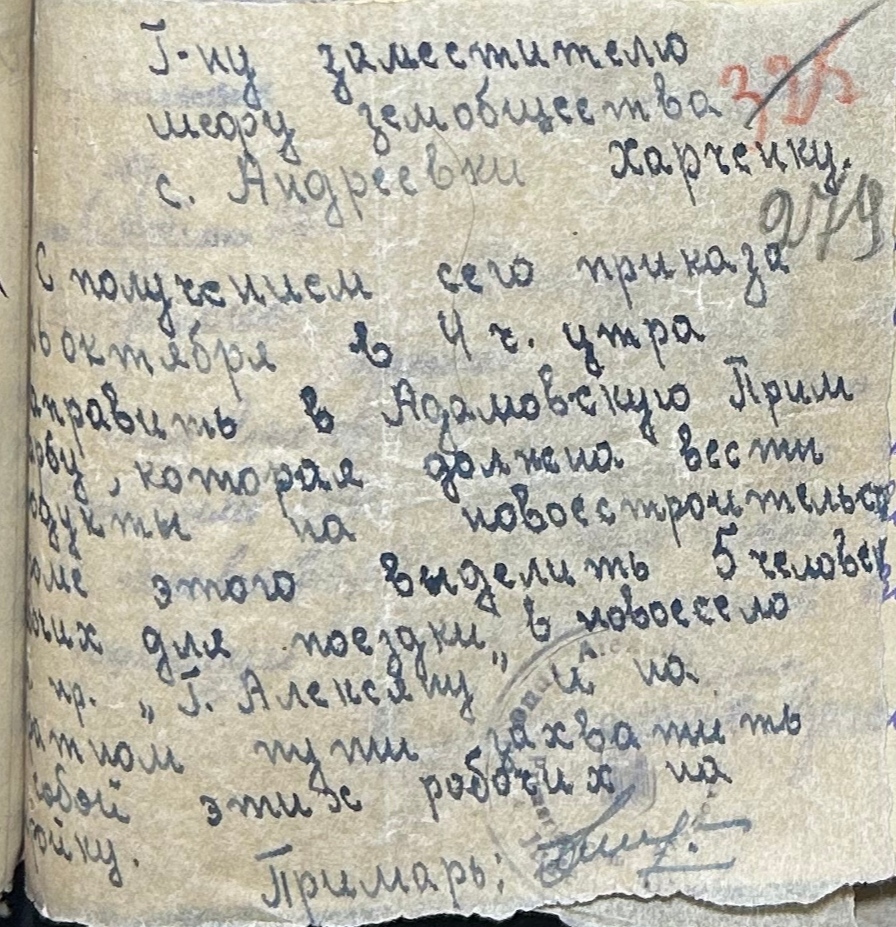 Г-ну заместителю
шефу земобщества 325
с. Андреевки Харченку.
279
С получением сего приказа
октября в 4 ч. утра
аправить в Адамовскую Прим
рбу, которая должна вести
одукты на новоестроительст
оме этого выделить 5 человек
очих для поездки „в новоесело
пр. „Г. Алексяну" и на
атном пути захватить
собой этих робочих на
ойку.
Примарь: